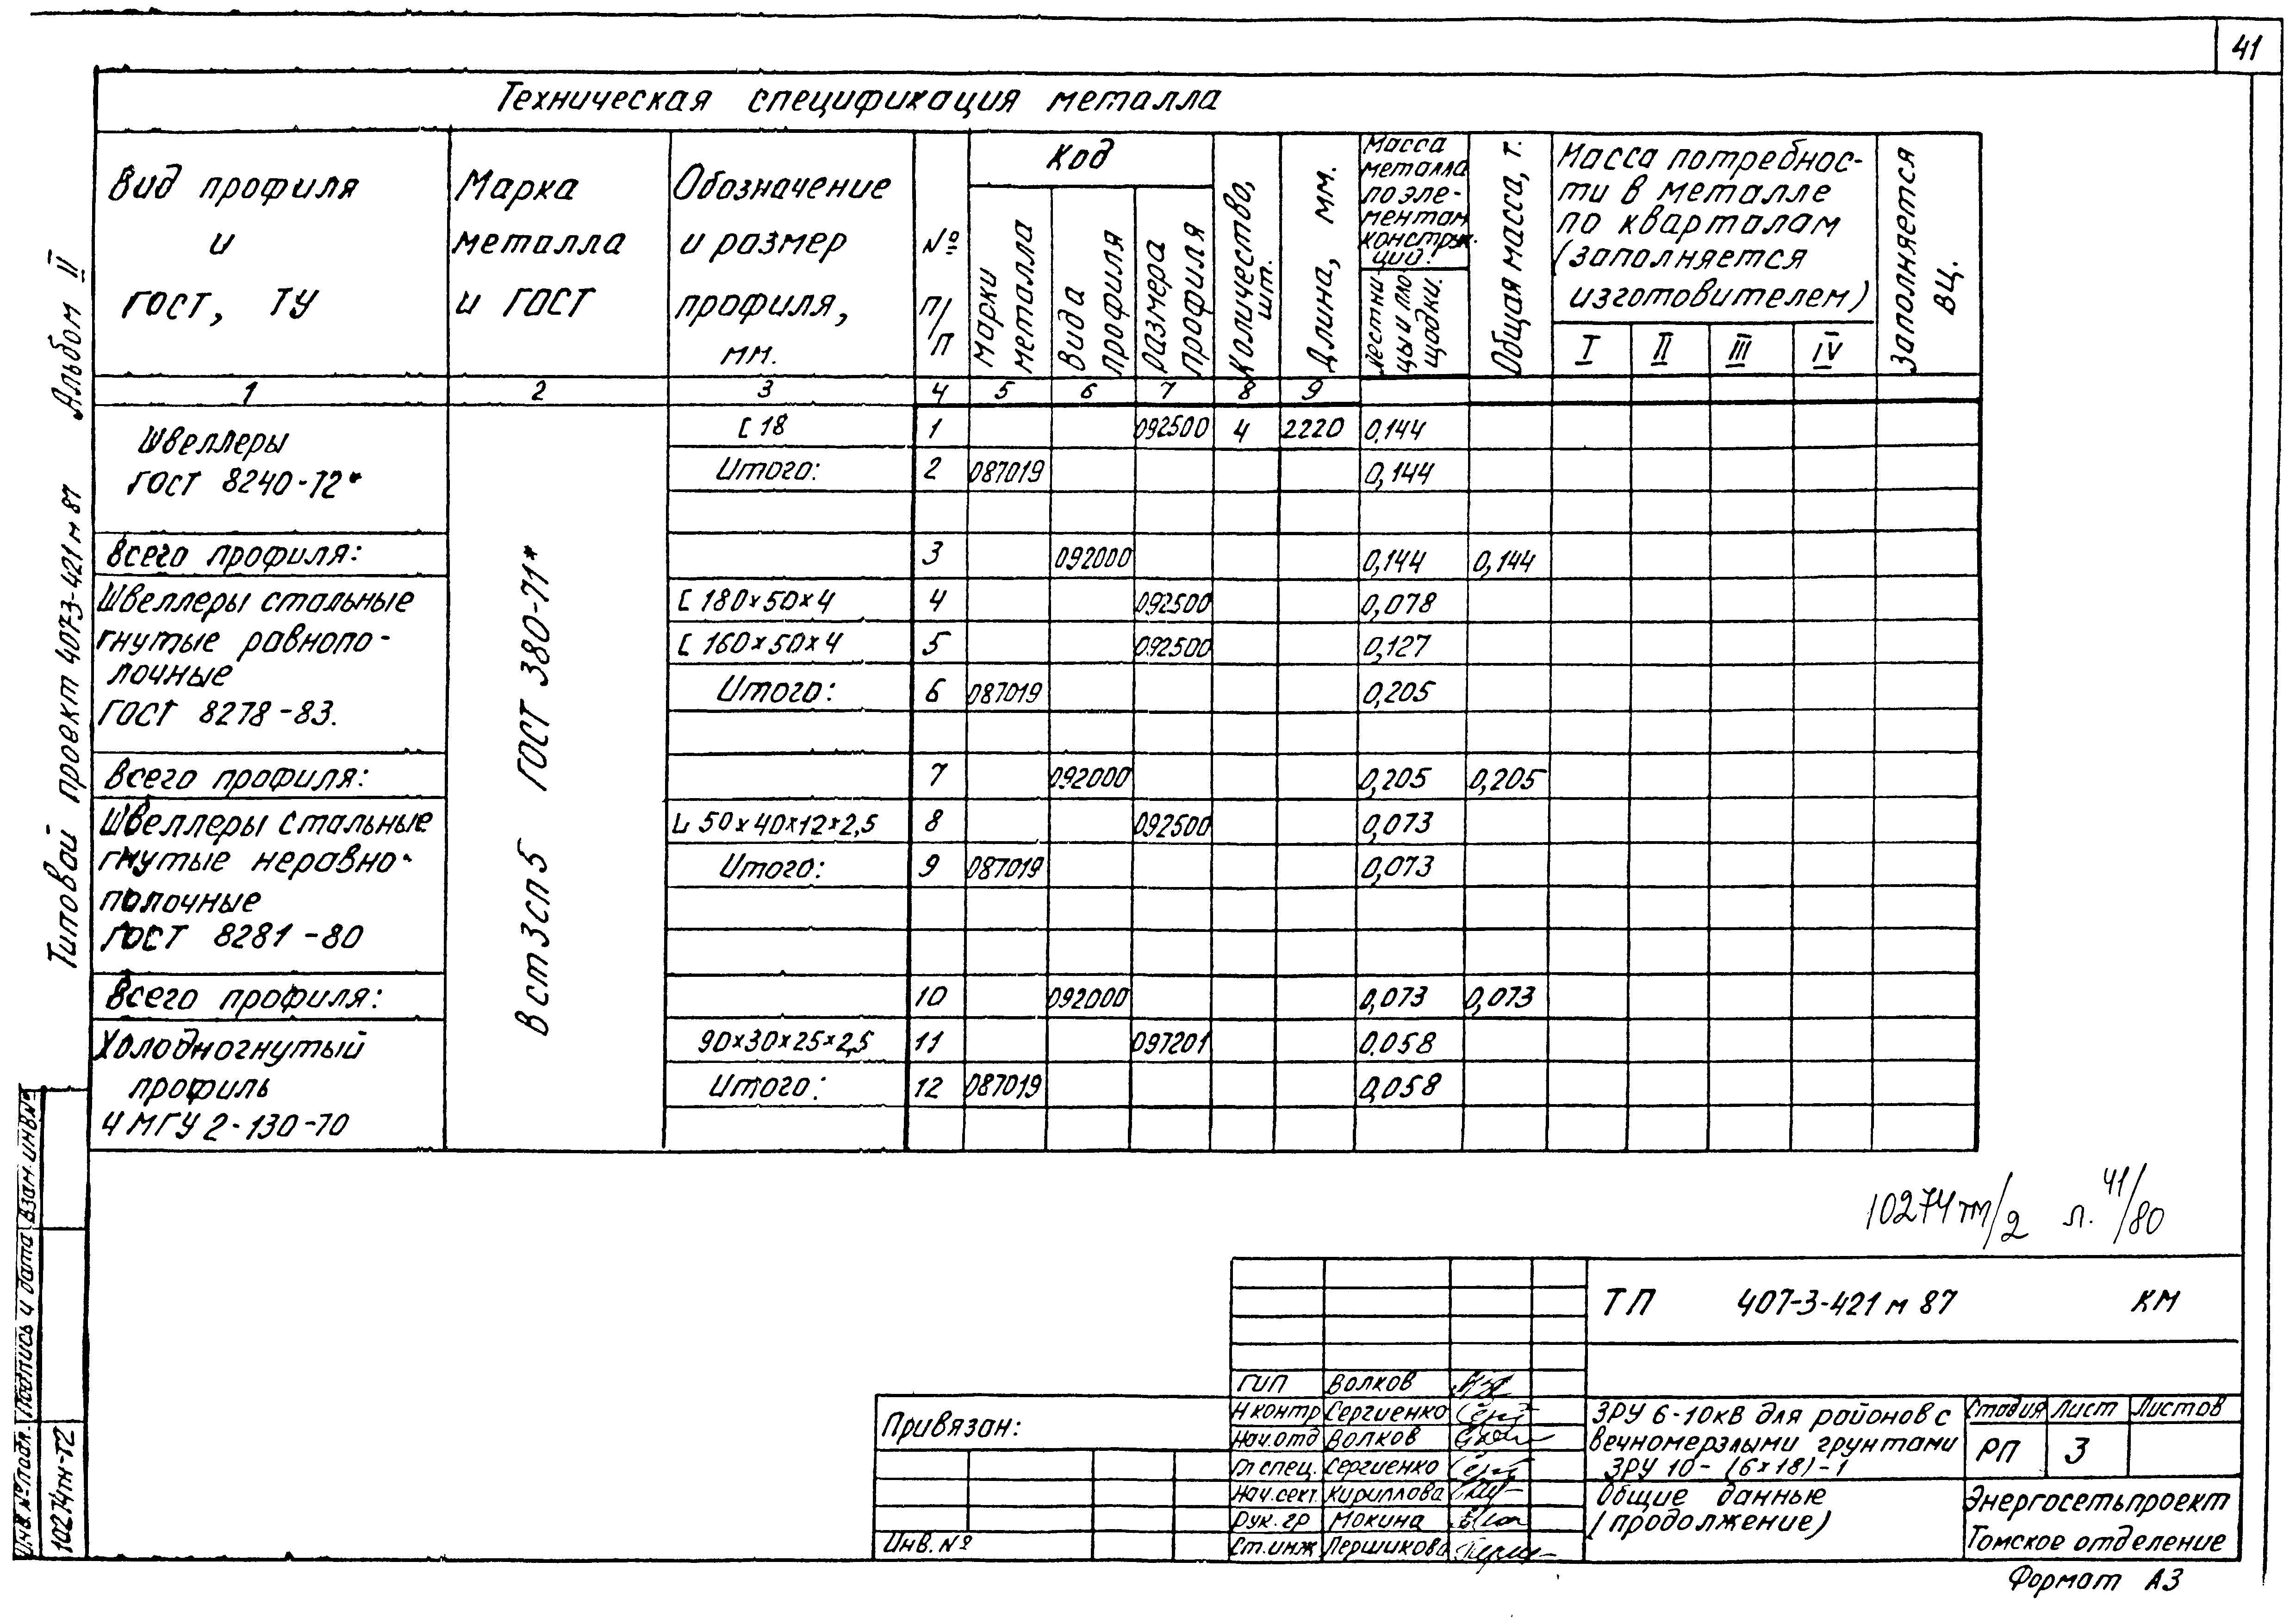 41
Техническая спецификация металла
Вид профиля и ГОСТ, ТУ
Марка металла и ГОСТ
Обозначение и размер профиля, мм.
№ п/п
Код
марки металла
вида профиля
размера профиля
Количество, шт.
Длина, мм.
Масса металла по элементам конструкций.
лестницы и площадки.
Общая масса, т.
Масса потребности в металле по кварталам (заполняется изготовителем)
I II III IV
Заполняется ВЦ.
1 2 3 4 5 6 7 8 9
Швеллеры
ГОСТ 8240-72*
[ 18 1 092500 4 2220 0.144
Итого: 2 087019 0,144
Всего профиля: 3 092000 0,144 0,144
Швеллеры стальные
гнутые равнопо-
лочные
ГОСТ 8278-83.
[ 180×50×4 4 092500 0,078
[ 160×50×4 5 092500 0,127
Итого: 6 087019 0,205
Всего профиля: 7 092000 0,205 0,205
Швеллеры стальные
гнутые неравно-
полочные
ГОСТ 8281-80
50×40×12×2,5 8 092500 0,073
Итого: 9 087019 0,073
Всего профиля: 10 092000 0,073 0,073
Холодногнутый
профиль
ЧМТУ 2-130-70
90×30×25×2,5 11 097201 0.058
Итого: 12 087019 0,058
Вст3сп5 ГОСТ 380-71*
Типовой проект 4073-421м87 Альбом II
Инв.№подл. Подпись и дата Взам.инв№
10274тм-т2
10274тм/2 л. 41/80
ТП 407-3-421м87 КМ
Привязан:
Инв.№
ГИП Волков
Н контр Сергиенко
Нач.отд Волков
Гл спец. Сергиенко
Нач.сект. Кириллова
Рук.гр Мокина
Ст.инж Першикова
ЗРУ 6-10кВ для районов с
вечномерзлыми грунтами
ЗРУ 10-(6×18)-1
Стадия Лист Листов
РП 3
Общие данные
(продолжение)
Энергосетьпроект
Томское отделение
Формат А3